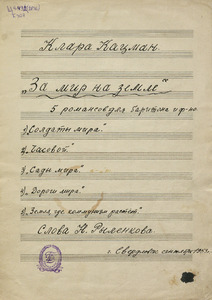 Клара Кацман.
„За мир на земле"
5 романсов для баритона и ф-но
1) „Солдаты мира."
2) „Часовой."
3) „Сады мира."
4) „Дороги мира."
5) „Земля, где коммунизм растет."
Слова Н. Рыленкова
г. Свердловск, сентябрь